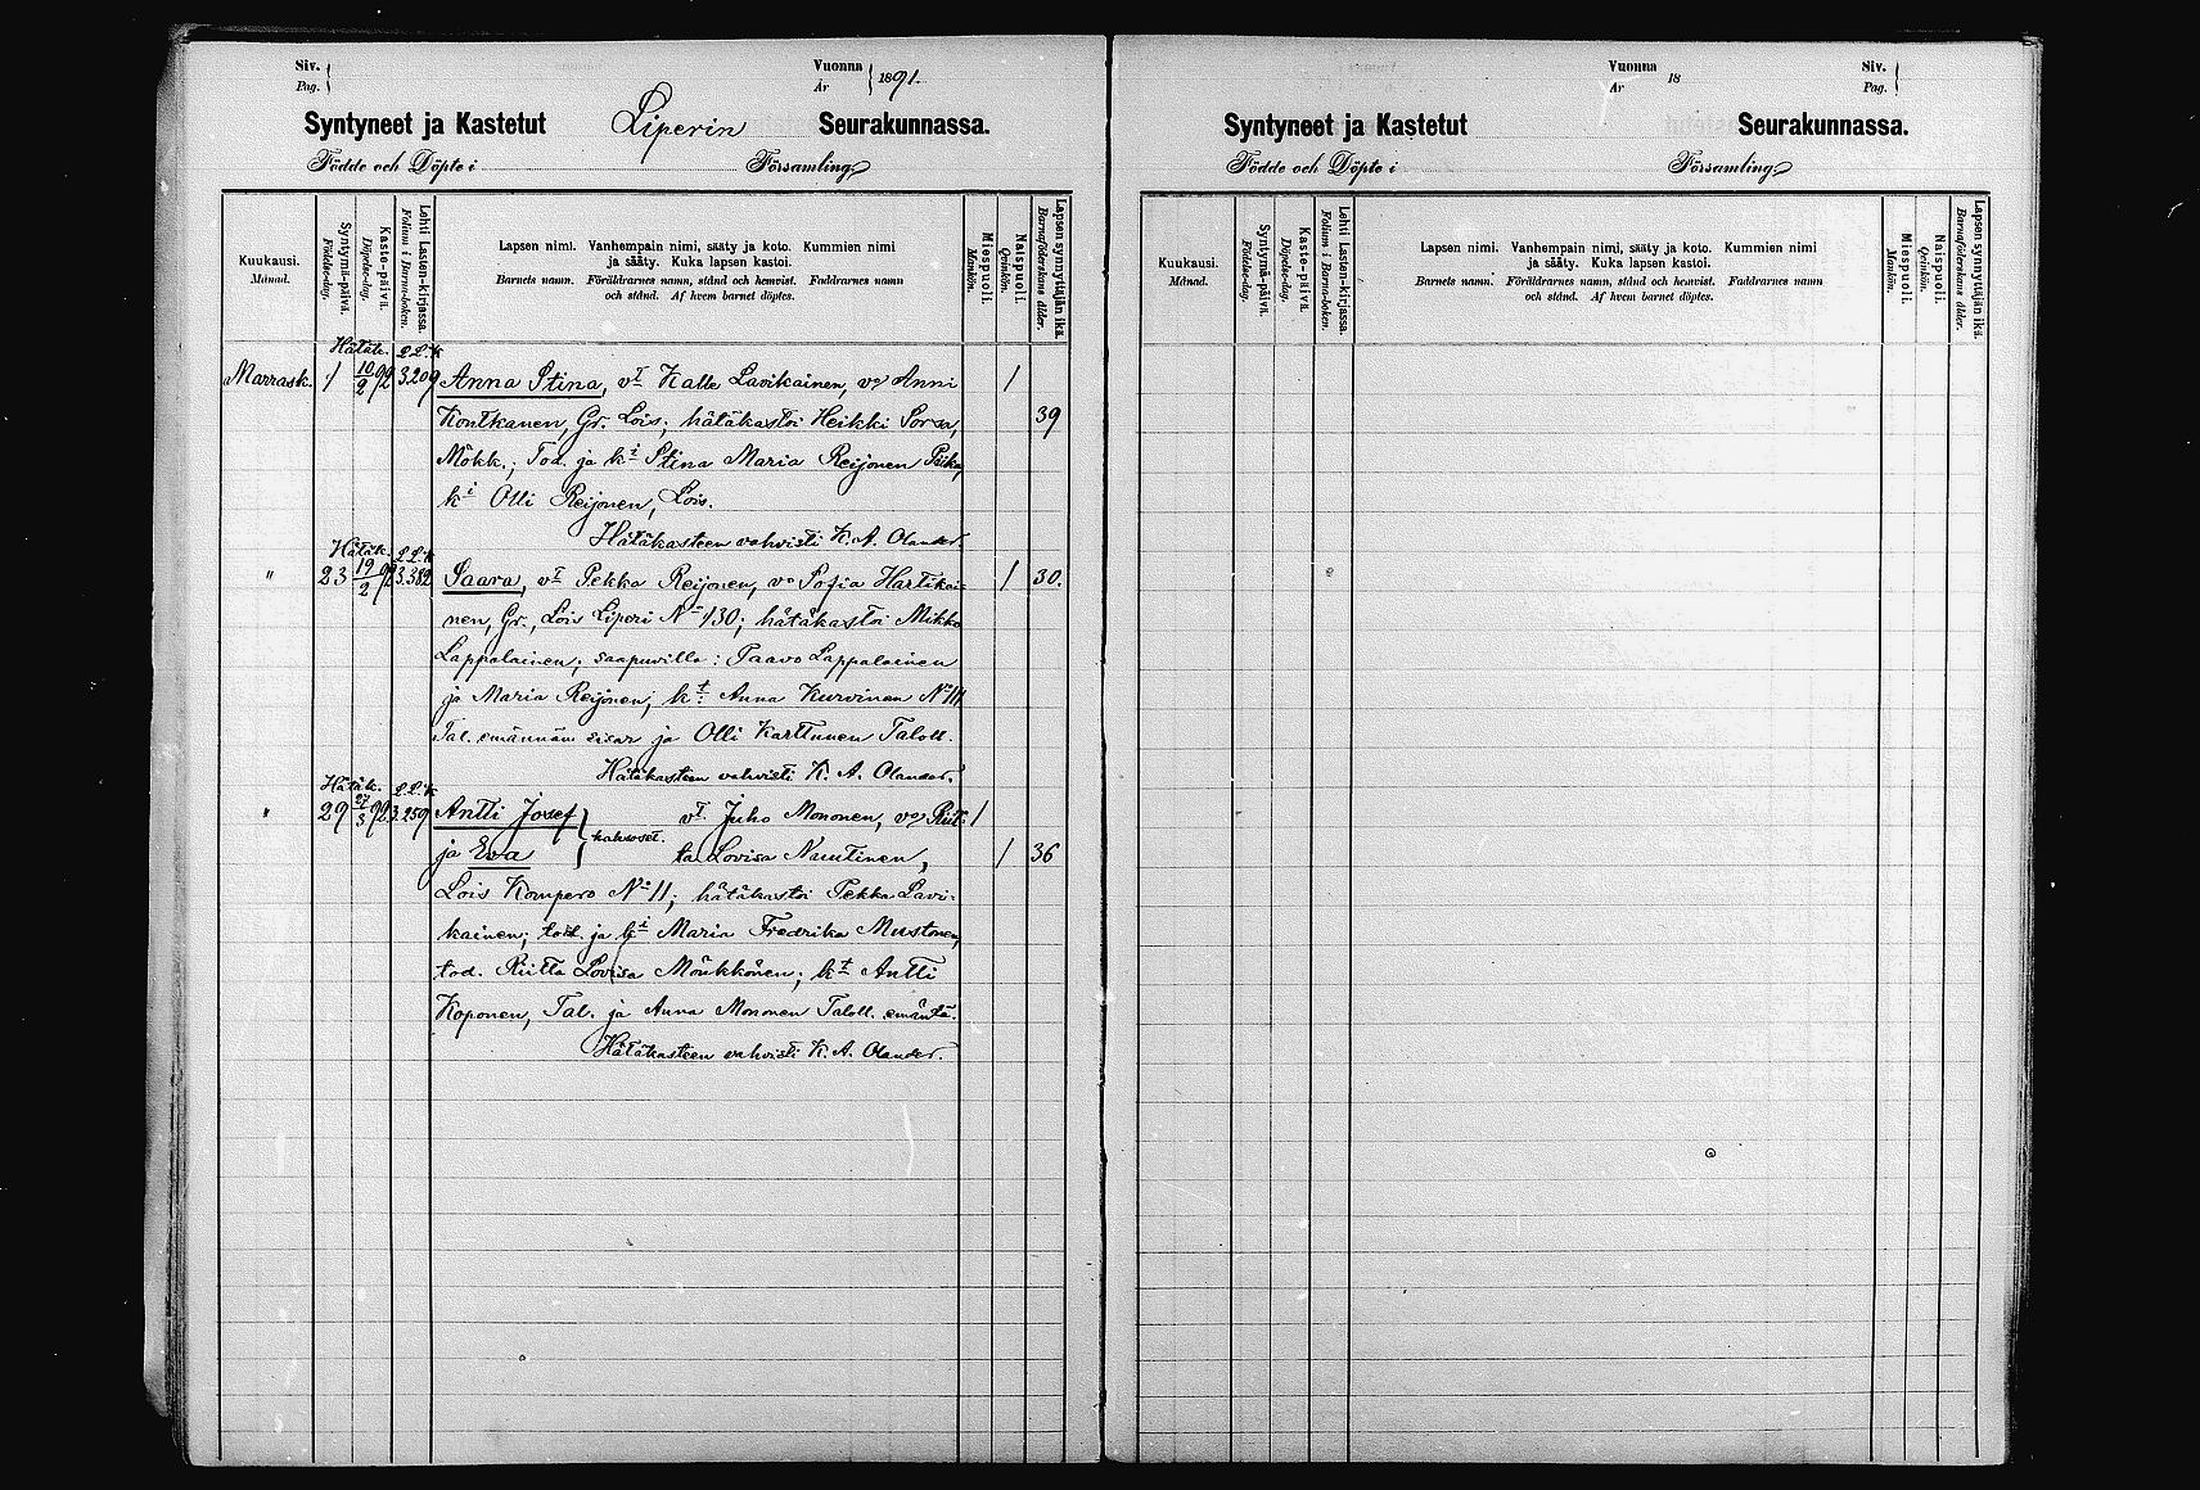 Siv.
Pag.
Vuonna
År
1891.
Syntyneet ja Kastetut Liperin Seurakunnassa.
Födde och Döpte i Församling.
Kuukausi.
Månad.
Syntymä-päivä.
Födelse-dag.
Kaste-päivä.
Döpelse-dag.
Lehti Lasten-kirjassa.
Folium i Barna-boken.
Lapsen nimi. Vanhempain nimi, sääty ja koto. Kummien nimi
ja sääty. Kuka lapsen kastoi.
Barnets namn. Föräldrarnes namn, stånd och hemvist. Faddrarnes namn
och stånd. Af hvem barnet döptes.
Miespuoli.
Mankön.
Naispuoli.
Qvinkön.
Lapsen synnyttäjän ikä.
Barnaföderskans ålder.
Hätäk. L.L.K
Marrask. 1 10/2 92 3.209 Anna Stina, vt Kalle Lavikainen, vo Anni 1
Kontkanen, Gr. Lois; hätäkastoi Heikki Sorsa, 39
Mökk.; Tod. ja ki Stina Maria Reijonen Piika,
ki Olli Reijonen, Lois.
Hätäkasteen vahvisti K. A. Olander.
Hätäk. L.L.K
" 23 19/2 92 3.382 Saara, vt Pekka Reijonen, vo Sofia Hartikai- 1 30.
nen, Gr., Lois Liperi No 130; hätäkastoi Mikko
Lappalainen; saapuvilla: Paavo Lappalainen
ja Maria Reijonen; kt: Anna Kurvinen
Tal. emännän sisar ja Olli Karttunen Taloll.
Hätäkasteen vahvisti K. A. Olander.
Hätäk. L.L.K
" 29 27/3 92 3.259 Antti Josef vt. Juho Mononen, vo Riit- 1
kaksoset.
ja Eva ta Lovisa Nuutinen, 1 36
Lois Kompero No 11; hätäkastoi Pekka Lavi-
kainen; tod. ja ki Maria Fredrika Mustonen,
tod. Riitta Lovisa Mönkkönen; kt Antti
Koponen, Tal. ja Anna Mononen Taloll. emäntä.
Hätäkasteen vahvisti K. A. Olander.
Vuonna
År
18
Siv.
Pag.
Syntyneet ja Kastetut Seurakunnassa.
Födde och Döpte i Församling.
Kuukausi.
Månad.
Syntymä-päivä.
Födelse-dag.
Kaste-päivä
Döpelse-dag.
Lehti Lasten-kirjassa.
Folium i Barna-boken.
Lapsen nimi. Vanhempain nimi, sääty ja koto. Kummien nimi
ja sääty. Kuka lapsen kastoi.
Barnets namn. Föräldrarnes namn, stånd och hemvist. Faddrarnes namn
och stånd. Af hvem barnet döptes.
Miespuoli.
Mankön.
Naispuoli.
Qvinkön.
Lapsen synnyttäjän ikä.
Barnaföderskans ålder.